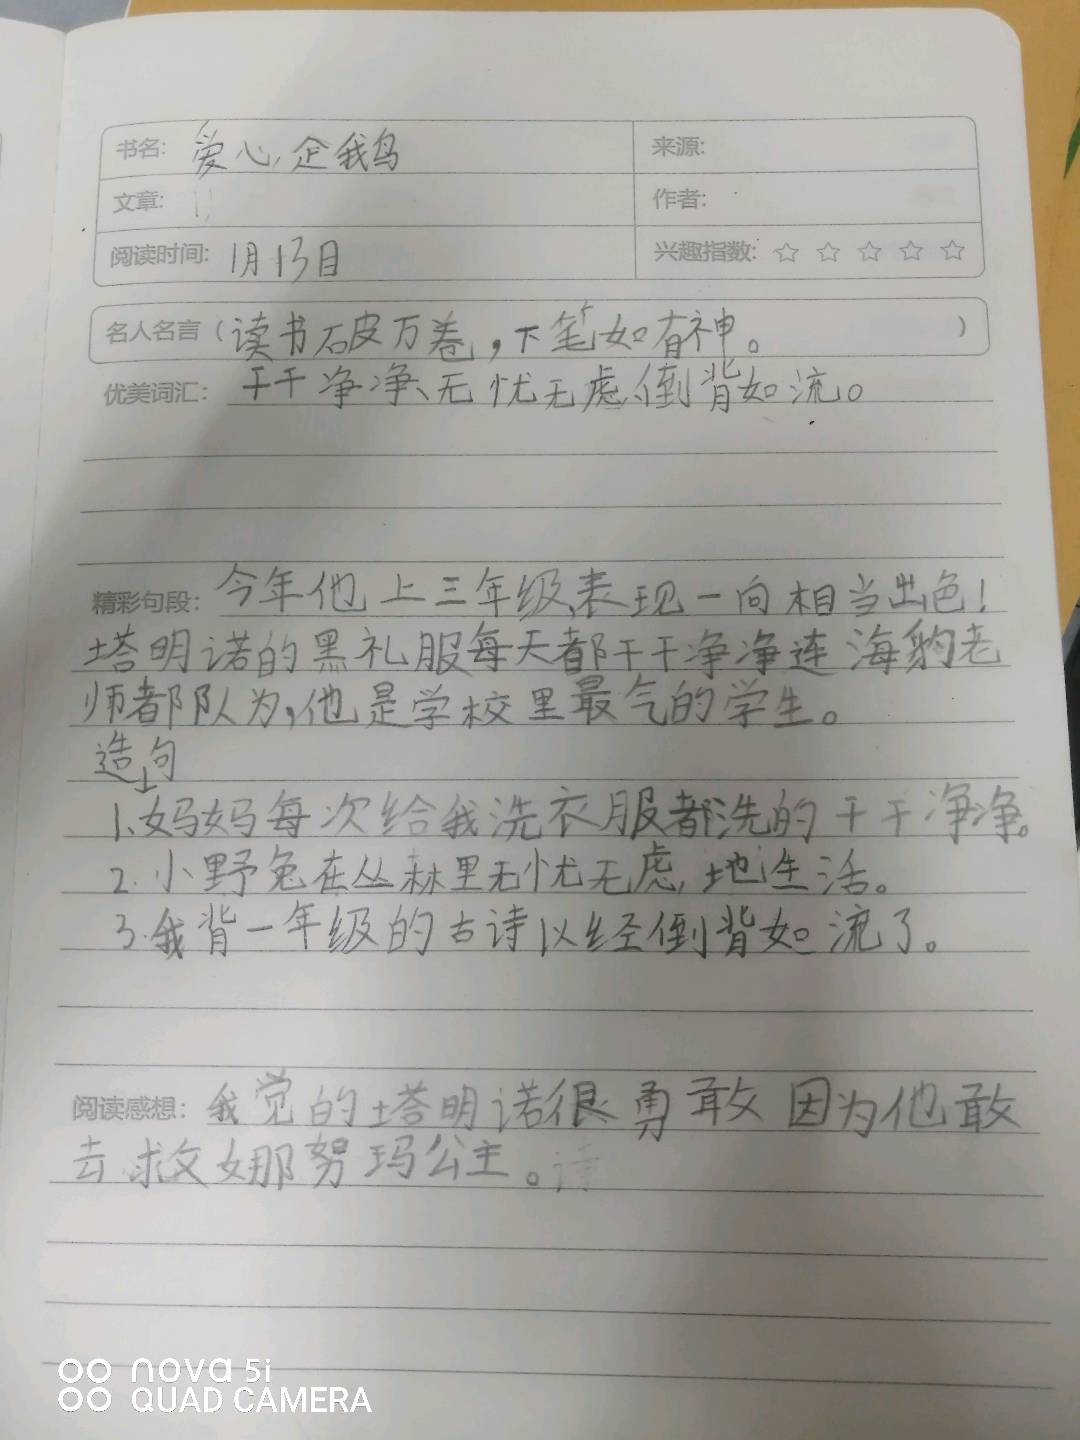 书名: 爱心企我鸟 来源:
文章: 作者:
阅读时间: 1月13日 兴趣指数: ☆ ☆ ☆ ☆ ☆
名人名言 (读书破万卷,下笔如有神。 )
优美词汇: 干干净净、无忧无虑、倒背如流。
精彩句段: 今年他上三年级,表现一向相当出色!
塔明诺的黑礼服每天都干干净净连海豹老
师都队为,他是学校里最气的学生。
造句
1.妈妈每次给我洗衣服都洗的干干净净。
2.小野兔在丛林里无忧无虑,地生活。
3.我背一年级的古诗以经倒背如流了。
阅读感想: 我觉的塔明诺很勇敢因为他敢
去求文女那努玛公主。诗
nova 5i
QUAD CAMERA